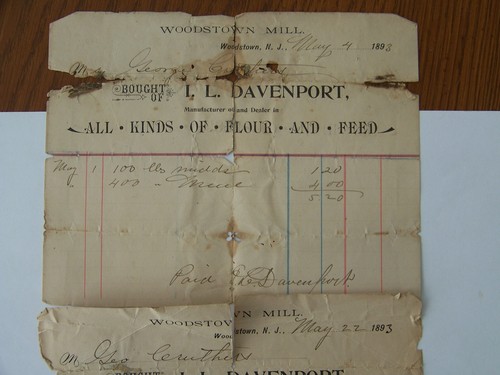 WOODSTOWN MILL.
Woodstown, N. J., May 4 1893
M George
BOUGHT OF I. L. DAVENPORT,
Manufacturer of and Dealer in
ALL • KINDS • OF • FLOUR • AND • FEED
May 1 100 lbs midds 1 20
" 400 " 4 00
5 20
Paid Davenport
WOODSTOWN MILL.
Woodstown, N. J., May 22 1893
M Geo Cruthers
BOUGHT I. L. DAVENPORT